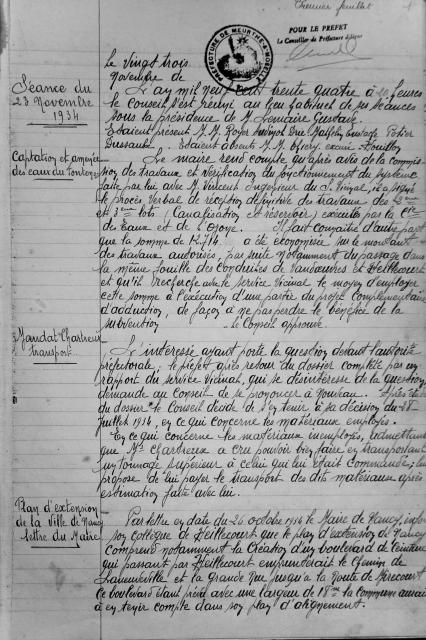 Premier feuillet
PRÉFECTURE DE MEURTHE & MOSELLE
POUR LE PRÉFET
Le Conseiller de Préfecture délégué
Séance du
23 Novembre
1934
Le Vingt trois
Novembre de
L'an mil neuf cent trente quatre à 20 heures
le Conseil s'est réuni au lieu habituel de ses séances
sous la présidence de M. Lemaire Gustave.
Etaient présent M.M. Royer
Etaient absent M.M.
Captation et amenée
des eaux du
Le maire rend compte qu'après avis de la Commis-
sion des travaux et vérification du fonctionnement du système
faite par lui avec M. Vincent Ingénieur du S. Vicinal, il a signé
le procès verbal de réception définitive des travaux des 2ème
et 3ème lots (Canalisation et réservoir) exécutés par la Cie
de Eaux et de l'Ozone. Il fait connaître d'autre part
que la somme de 12.714. a été économisée sur le montant
des travaux autorisés, par suite notamment du passage dans
la même fouille des conduites de Vandoeuvre et Heillecourt
et qu'il recherche avec le service Vicinal le moyen d'employer
cette somme à l'exécution d'une partie du projet complémentaire
d'adduction, de façon à ne pas perdre le bénéfice de la
subvention - le Conseil approuve.
Mandat Chartreux
transport
L'intéressé ayant porté la question devant l'autorité
préfectorale, le préfet après retour du dossier complété par un
rapport du service Vicinal, qui se désintéresse de la question
demande au Conseil de se prononcer à nouveau. Après étude
du dossier le Conseil décide de s'en tenir à sa décision du 28
Juillet 1934, en ce qui concerne les matériaux employés.
En ce qui concerne les matériaux inemployés, admettant
que Mr Chartreux a cru pouvoir bien faire en transportant
un tonnage supérieur à celui qui lui était commandé; le
propose de lui payer le transport des dits matériaux après
estimation faite avec lui.
Plan d'extension
de la Ville de Nancy
lettre du Maire
Par lettre en date du 26 octobre 1934 le Maire de Nancy, informe
son collègue de Heillecourt que le plan d'extension de Nancy
comprend notamment la Création d'un boulevard de Ceinture
qui passant par Heillecourt emprunterait le Chemin de
Laneuveville et la grande Rue jusqu'à la Route de Mirecourt
Ce boulevard étant prévu avec une largeur de 18m la Commune aurait
à en tenir compte dans son plan d'alignement.